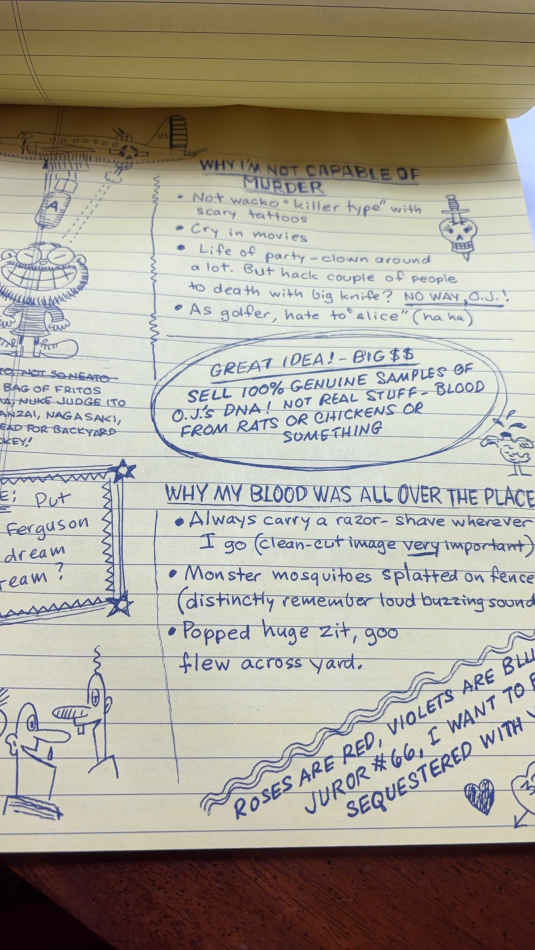 WHY I'M NOT CAPABLE OF
MURDER
• Not wacko "killer type" with
scary tattoos
• Cry in movies
• Life of party - clown around
a lot. But hack couple of people
to death with big knife? NO WAY, O.J.!
• As golfer, hate to "slice" (ha ha)
A
NOT SO NEATO
BAG OF FRITOS
NUKE JUDGE ITO
NAGASAKI,
FOR BACKYARD
GREAT IDEA! - BIG $$
SELL 100% GENUINE SAMPLES OF
O.J.'S DNA! NOT REAL STUFF - BLOOD
FROM RATS OR CHICKENS OR
SOMETHING
Put
Ferguson
dream
?
WHY MY BLOOD WAS ALL OVER THE PLACE
• Always carry a razor - shave wherever
I go (clean-cut image very important)
• Monster mosquitoes splatted on fence
(distinctly remember loud buzzing sound
• Popped huge zit, goo
flew across yard.
ROSES ARE RED, VIOLETS ARE
JUROR #66, I WANT TO
SEQUESTERED WITH